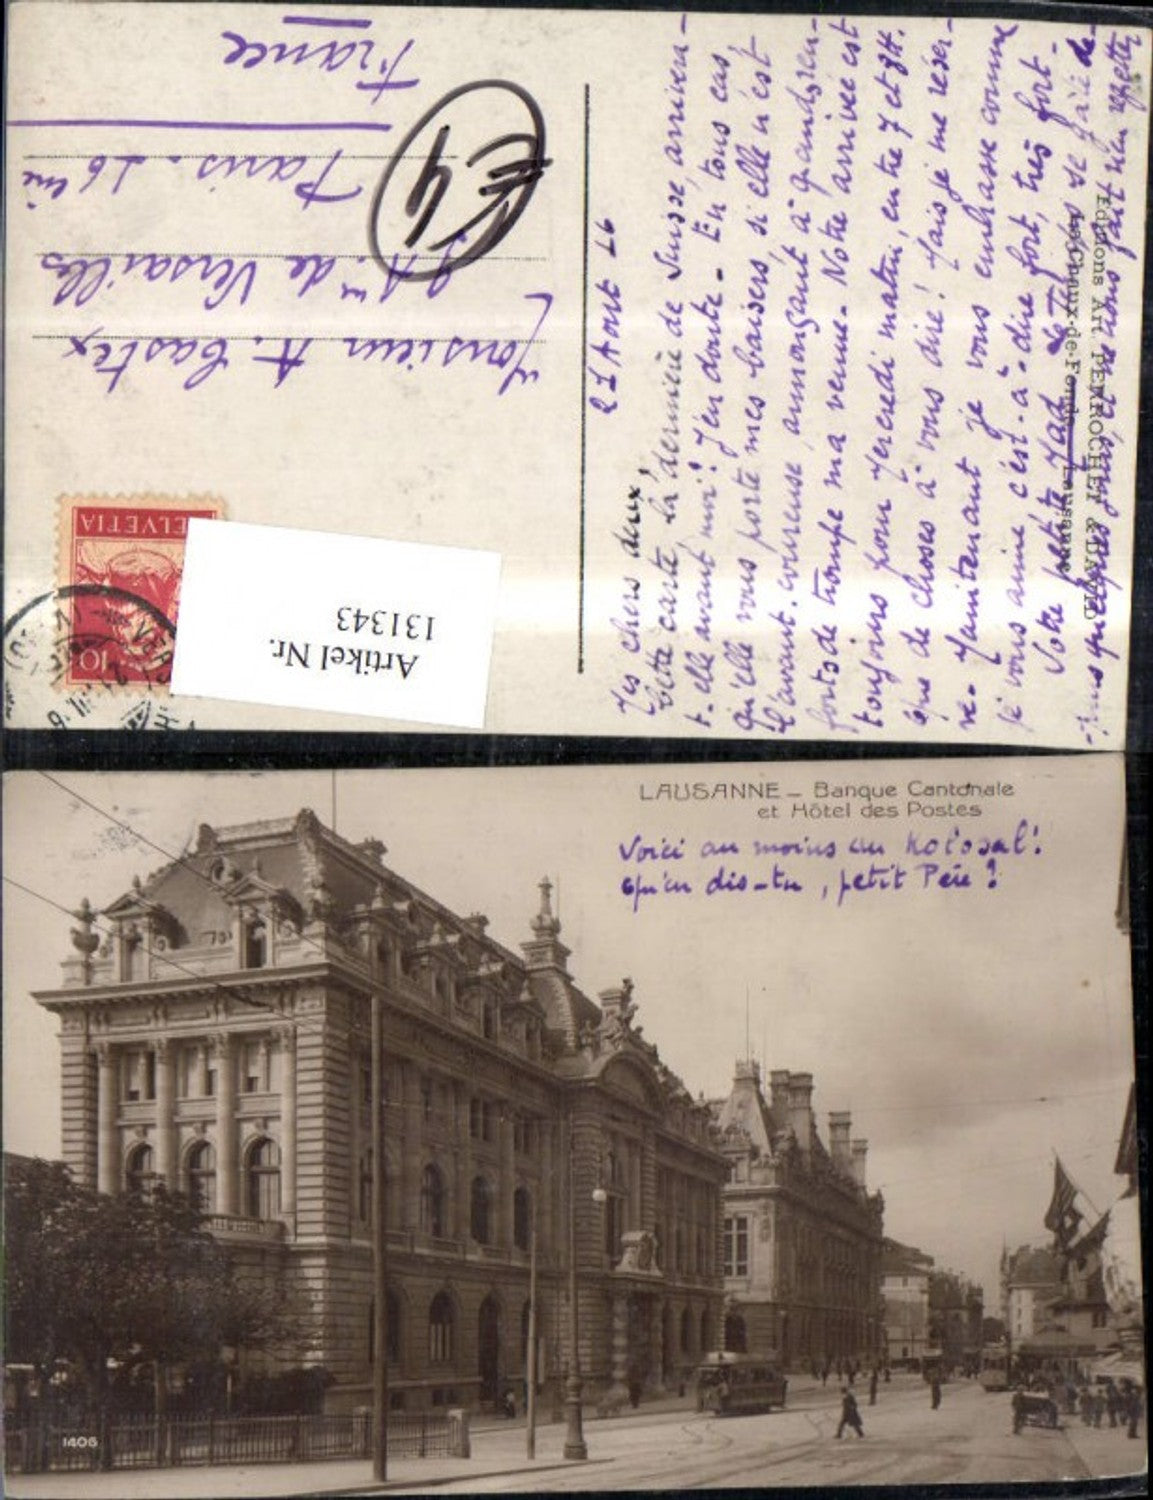 France
Paris. 16 me
9 Av. de Versailles
Monsieur H. Castex
€4
HELVETIA
10
Artikel Nr.
131343
21 Aout 26
Mes chers deux,
Cette carte, la dernière de Suisse, arrivera-
t-elle avant moi? J'en doute - En tous cas,
qu'elle vous porte mes baisers, si elle n'est
l'avant-coureuse, annonçant à grands ren-
forts de trompe ma venue. Notre arrivée est
toujours pour Mercredi matin, entre 7 et 8 H.
Que de choses à vous dire! Mais je me réser-
ve. Maintenant je vous embrasse comme
je vous aime c'est-à-dire fort, très fort.
Votre petite Mad
Editions Art. PERROCHET & DAVID
La Chaux-de-Fonds Lausanne
LAUSANNE – Banque Cantonale
et Hôtel des Postes
Voici au moins du Kolosal!
Qu'en dis-tu, petit Père?
1406